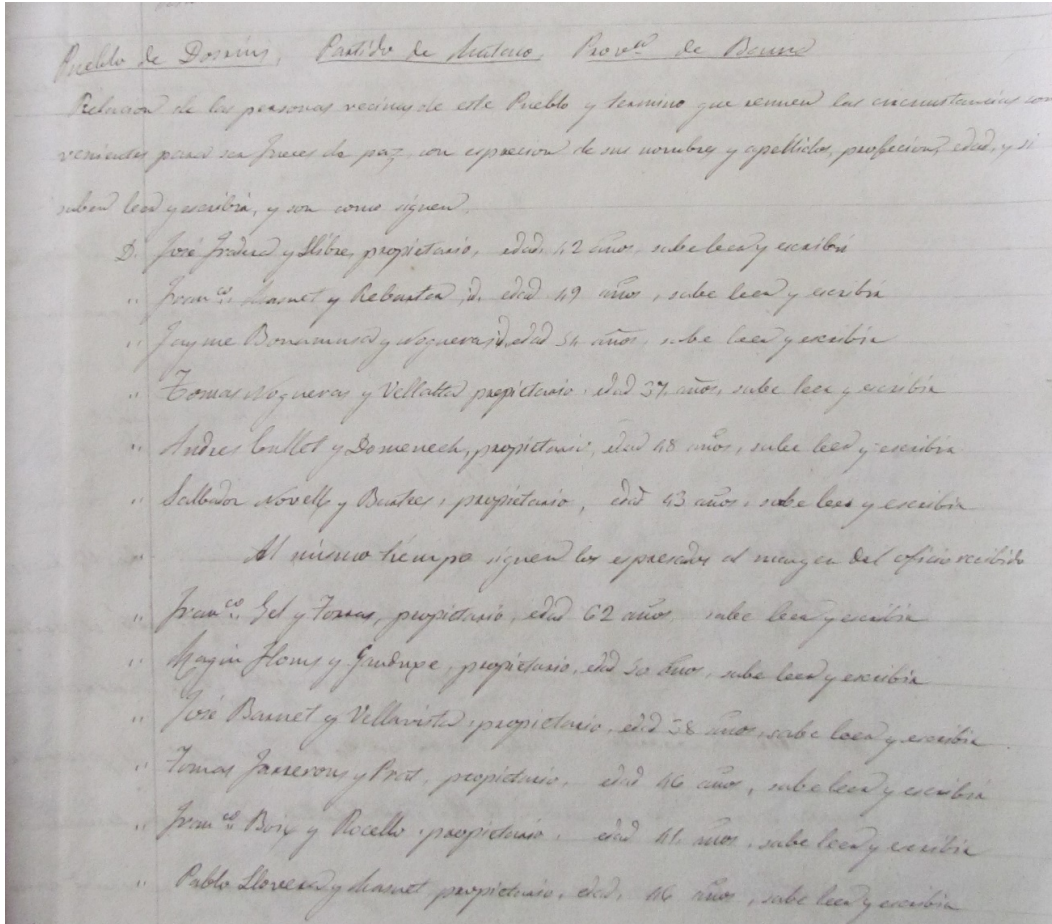 Pueblo de Dosrius, Partido de Mataro, Provª de Barna
Relacion de las personas vecinas de este Pueblo y termino que reunen las circunstancias con
venientes para ser Jueces de paz, con espresion de sus nombres y apellidos, profecion, edad, y si
saben leer y escribir, y son como siguen
D. José y Llibre, propietario, edad 42 años, sabe leer y escribir
" Franco. Masuet y id. edad 49 años, sabe leer y escribir
" Jayme Bonamusa y Nogueras, id. edad 54 años, sabe leer y escribir
" Tomas Nogueras y Vellalta propietario edad 37 años, sabe leer y escribir
" Andres Collet y Domenech, propietario, edad 48 años, sabe leer y escribir
" Salbador Novell y propietario, edad 43 años, sabe leer y escribir
" Al mismo tiempo siguen los espresados al margen del oficio recibido
" Franco. Gel y Torras, propietario, edad 62 años, sabe leer y escribir
" Magin y propietario, edad 50 años, sabe leer y escribir
" José Barnet y Villavista, propietario, edad 38 años, sabe leer y escribir
" Tomas y Prat, propietario, edad 46 años, sabe leer y escribir
" Franco. Boix y propietario, edad 41 años, sabe leer y escribir
" Pablo Llovera y Masuet propietario, edad, 46 años, sabe leer y escribir